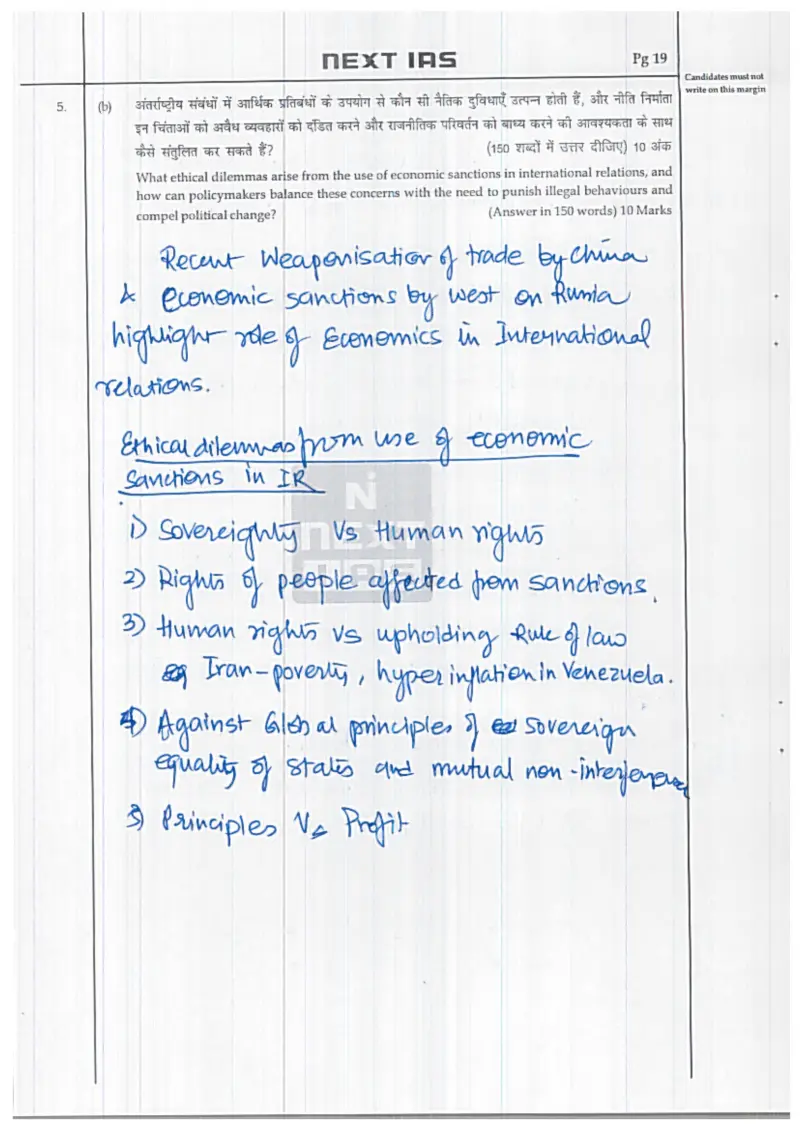 NEXT IAS
Pg 19
Candidates must not
write on this margin
5. (b) अंतर्राष्ट्रीय संबंधों में आर्थिक प्रतिबंधों के उपयोग से कौन सी नैतिक दुविधाएँ उत्पन्न होती हैं, और नीति निर्माता
इन चिंताओं को अवैध व्यवहारों को दंडित करने और राजनीतिक परिवर्तन को बाध्य करने की आवश्यकता के साथ
कैसे संतुलित कर सकते हैं? (150 शब्दों में उत्तर दीजिए) 10 अंक
What ethical dilemmas arise from the use of economic sanctions in international relations, and
how can policymakers balance these concerns with the need to punish illegal behaviours and
compel political change? (Answer in 150 words) 10 Marks
Recent Weaponisation of trade by China
& economic sanctions by west on Russia
highlight role of Economics in International
relations.
Ethical dilemmas from use of economic
Sanctions in IR
1) Sovereignty Vs Human rights
2) Rights of people affected from sanctions.
3) Human rights vs upholding Rule of law
eg Iran-poverty, hyperinflation in Venezuela.
4) Against Global principles of sovereign
equality of states and mutual non-interference
5) Principles Vs Profit
NEXT